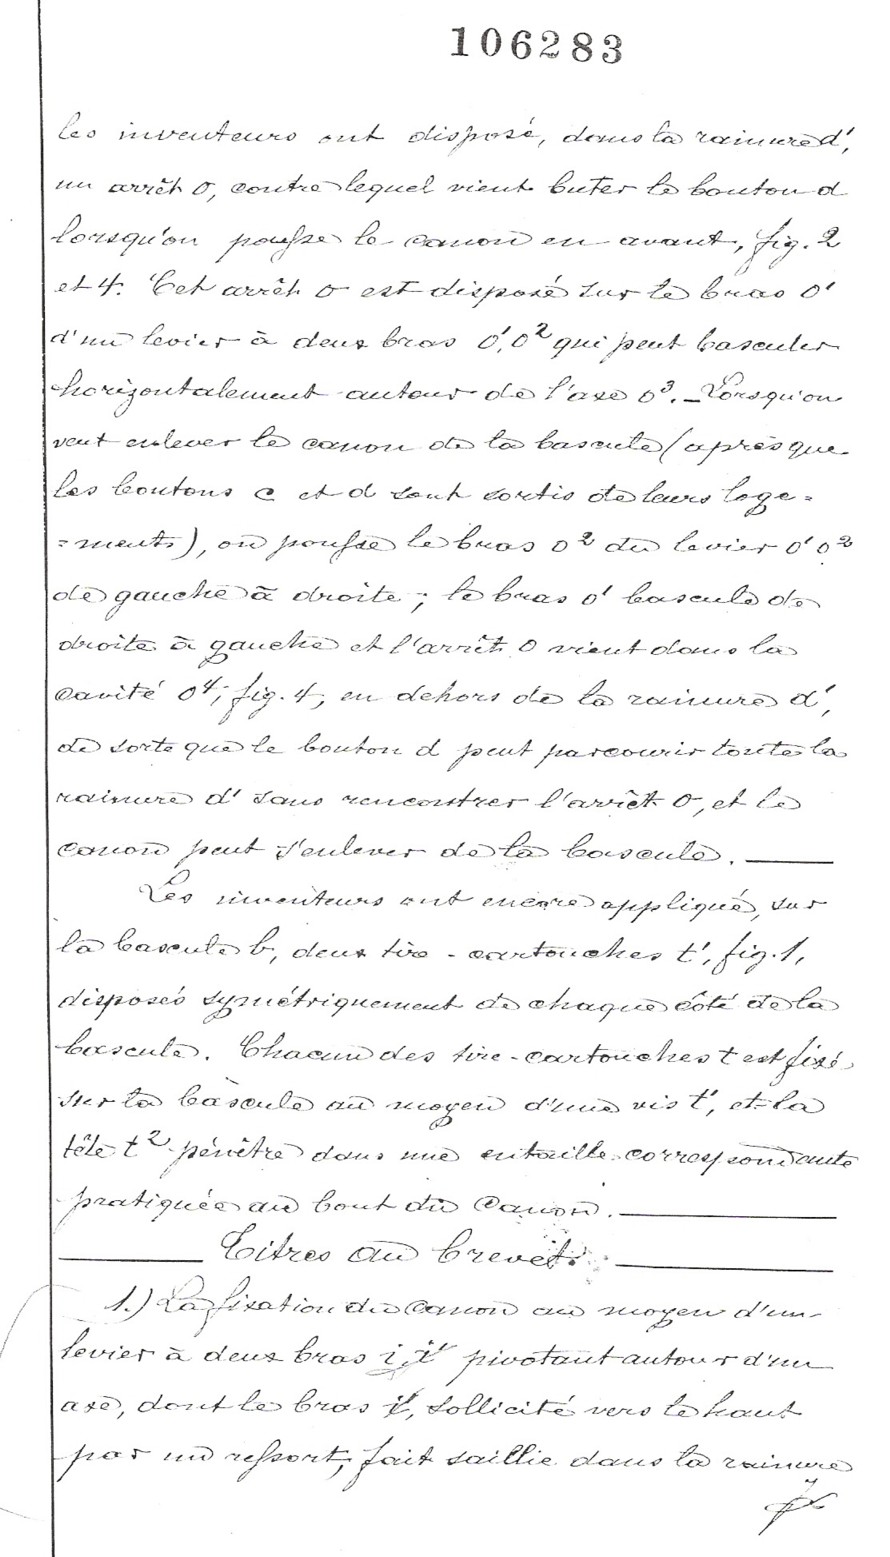 106283
les inventeurs ont disposé, dans la rainure d',
un arrêt o, contre lequel vient buter le bouton d
lorsqu'on pousse le canon en avant, fig. 2
et 4. Cet arrêt o est disposé sur le bras o'
d'un levier à deux bras o', o² qui peut basculer
horizontalement autour de l'axe o³. _ Lorsqu'on
veut enlever le canon de la bascule (après que
les boutons c et d sont sortis de leurs loge=
=ments), on pousse le bras o² du levier o' o²
de gauche à droite ; le bras o' bascule de
droite à gauche et l'arrêt o vient dans la
cavité o⁴, fig. 4, en dehors de la rainure d',
de sorte que le bouton d peut parcourir toute la
rainure d' sans rencontrer l'arrêt o, et le
canon peut s'enlever de la bascule.
Les inventeurs ont encore appliqué, sur
la bascule b, deux tire-cartouches t', fig. 1,
disposés symétriquement de chaque côté de la
bascule. Chacun des tire-cartouches t est fixé
sur la bascule au moyen d'une vis t', et la
tête t² pénètre dans une entaille correspondante
pratiquée au bout du canon.
Titres au brevet.
1.) La fixation du canon au moyen d'un
levier à deux bras i, i' pivotant autour d'un
axe, dont le bras i', sollicité vers le haut
par un ressort, fait saillie dans la rainure